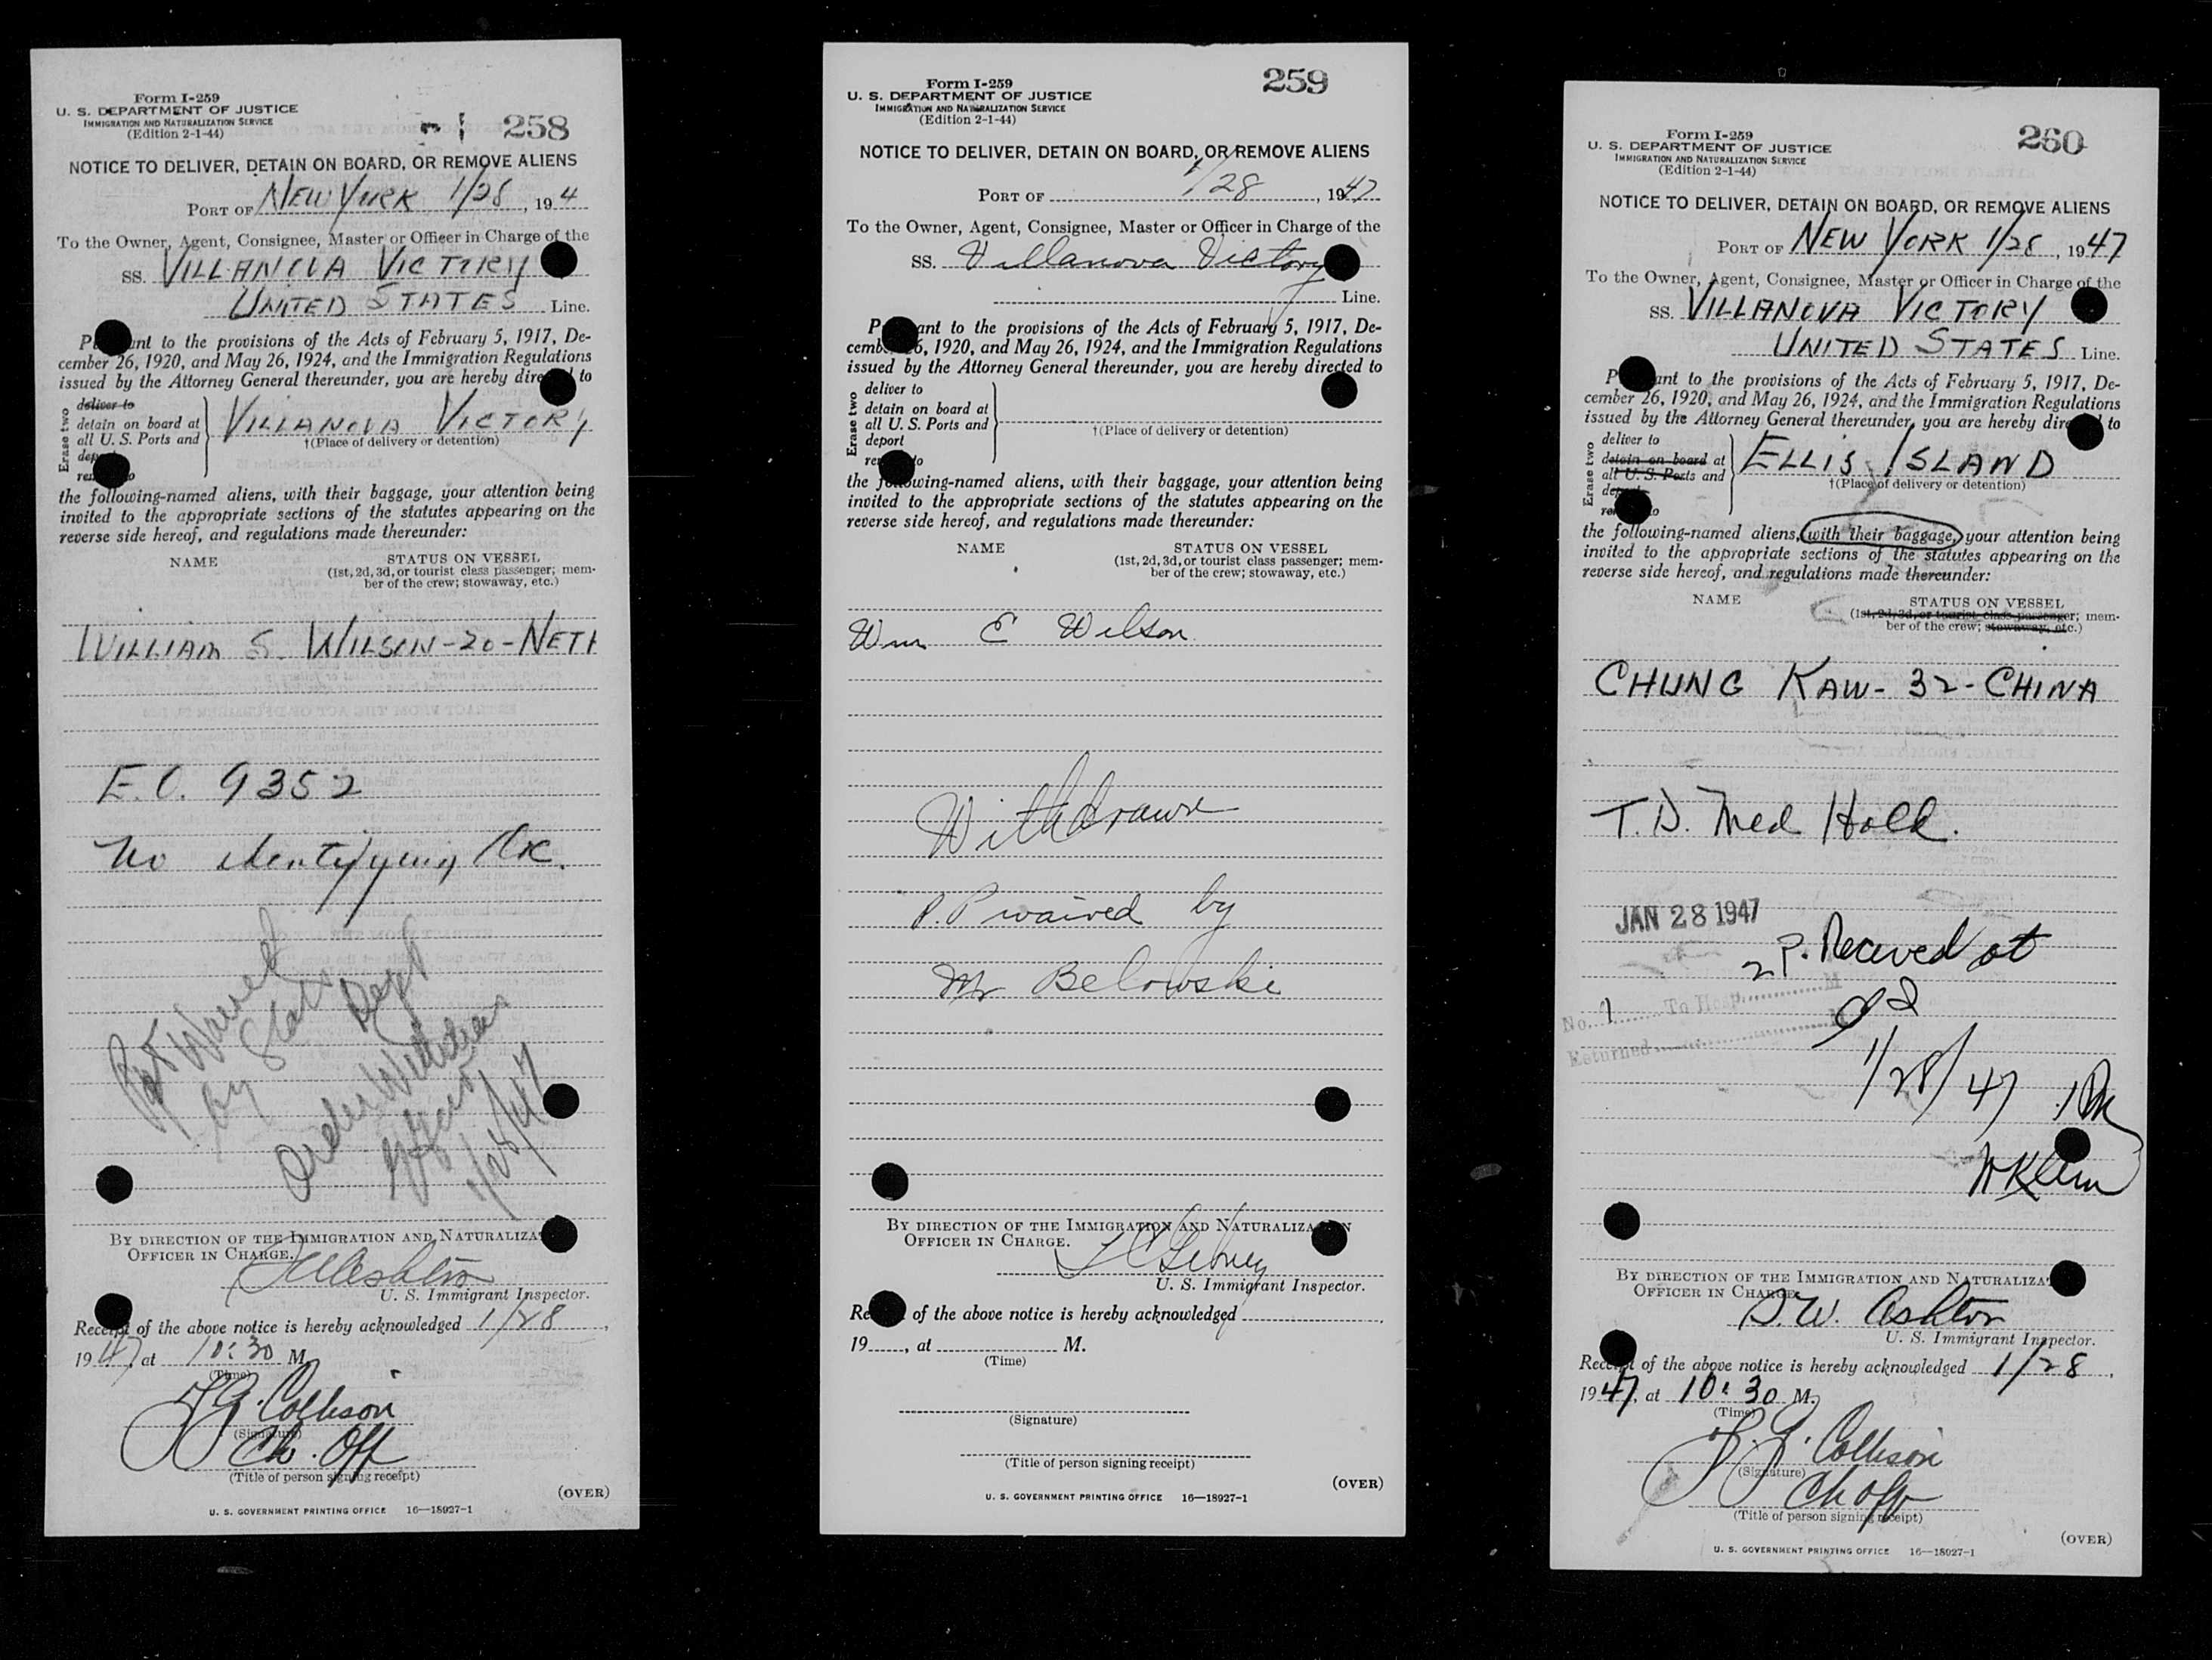 Form I-259
U. S. DEPARTMENT OF JUSTICE
IMMIGRATION AND NATURALIZATION SERVICE
(Edition 2-1-44)
258
NOTICE TO DELIVER, DETAIN ON BOARD, OR REMOVE ALIENS
PORT OF NEW YORK 1/28, 194
To the Owner, Agent, Consignee, Master or Officer in Charge of the
SS. VILLANOVA VICTORY
UNITED STATES Line.
P ant to the provisions of the Acts of February 5, 1917, De-
cember 26, 1920, and May 26, 1924, and the Immigration Regulations
issued by the Attorney General thereunder, you are hereby dire to
Erase two
deliver to
detain on board at
all U. S. Ports and
VILLANOVA VICTORY
†(Place of delivery or detention)
the following-named aliens, with their baggage, your attention being
invited to the appropriate sections of the statutes appearing on the
reverse side hereof, and regulations made thereunder:
NAME
STATUS ON VESSEL
(1st, 2d, 3d, or tourist class passenger; mem-
ber of the crew; stowaway, etc.)
WILLIAM S. WILSON-20-NETH
E.O. 9352
No identifying
Waived
by State Dept
Order Withdrawn
1/28/47
BY DIRECTION OF THE IMMIGRATION AND NATURALIZA
OFFICER IN CHARGE.
Ashton
U. S. Immigrant Inspector.
Receipt of the above notice is hereby acknowledged 1/28,
1947, at 10:30 M.
(Time)
Collison
(Signature)
Ch. Off
(Title of person signing receipt)
(OVER)
U. S. GOVERNMENT PRINTING OFFICE 16—18927-1
Form I-259
U. S. DEPARTMENT OF JUSTICE
IMMIGRATION AND NATURALIZATION SERVICE
(Edition 2-1-44)
259
NOTICE TO DELIVER, DETAIN ON BOARD, OR REMOVE ALIENS
PORT OF 1/28, 1947
To the Owner, Agent, Consignee, Master or Officer in Charge of the
SS. Villanova Victory
Line.
P ant to the provisions of the Acts of February 5, 1917, De-
cemb 6, 1920, and May 26, 1924, and the Immigration Regulations
issued by the Attorney General thereunder, you are hereby directed to
Erase two
deliver to
detain on board at
all U. S. Ports and
deport
re to
†(Place of delivery or detention)
the following-named aliens, with their baggage, your attention being
invited to the appropriate sections of the statutes appearing on the
reverse side hereof, and regulations made thereunder:
NAME
STATUS ON VESSEL
(1st, 2d, 3d, or tourist class passenger; mem-
ber of the crew; stowaway, etc.)
Wm E Wilson
Withdrawn
P.P waived by
Mr Belowski
BY DIRECTION OF THE IMMIGRATION AND NATURALIZATION
OFFICER IN CHARGE.
U. S. Immigrant Inspector.
Re of the above notice is hereby acknowledged
19 , at M.
(Time)
(Signature)
(Title of person signing receipt)
(OVER)
U. S. GOVERNMENT PRINTING OFFICE 16—18927-1
Form I-259
U. S. DEPARTMENT OF JUSTICE
IMMIGRATION AND NATURALIZATION SERVICE
(Edition 2-1-44)
260
NOTICE TO DELIVER, DETAIN ON BOARD, OR REMOVE ALIENS
PORT OF NEW YORK 1/28, 1947
To the Owner, Agent, Consignee, Master or Officer in Charge of the
SS. VILLANOVA VICTORY
UNITED STATES Line.
P ant to the provisions of the Acts of February 5, 1917, De-
cember 26, 1920, and May 26, 1924, and the Immigration Regulations
issued by the Attorney General thereunder, you are hereby dire to
Erase two
deliver to
detain on board at
all U. S. Ports and
ELLIS ISLAND
†(Place of delivery or detention)
the following-named aliens, with their baggage, your attention being
invited to the appropriate sections of the statutes appearing on the
reverse side hereof, and regulations made thereunder:
NAME
STATUS ON VESSEL
(1st, 2d, 3d, or tourist class passenger; mem-
ber of the crew; stowaway, etc.)
CHUNG KAW- 32- CHINA
T.D. Med Hold.
JAN 28 1947
2 P. Received at
No. 1 To Hosp M
Returned
1/28/47
Klein
BY DIRECTION OF THE IMMIGRATION AND NATURALIZA
OFFICER IN CHARGE.
S.W. Ashton
U. S. Immigrant Inspector.
Receipt of the above notice is hereby acknowledged 1/28,
1947, at 10:30 M.
(Time)
Collison
(Signature)
Ch Off
(Title of person signing receipt)
(OVER)
U. S. GOVERNMENT PRINTING OFFICE 16—18927-1